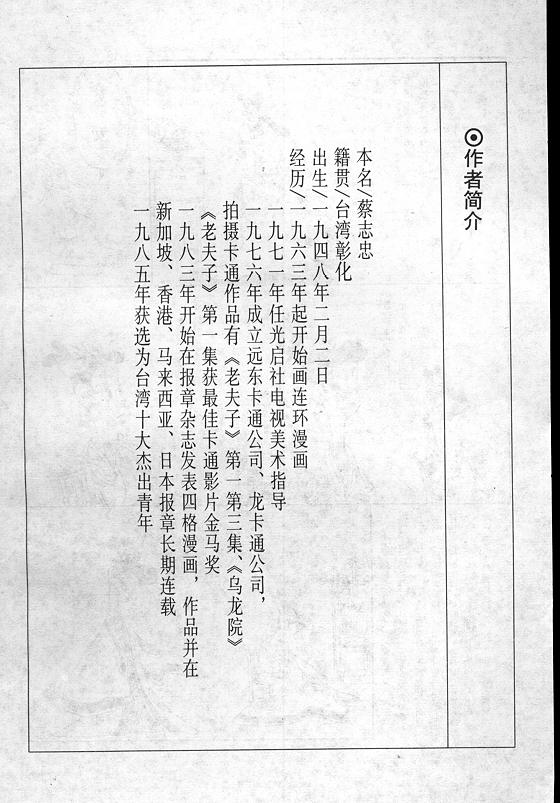 ⊙作者简介
本名/蔡志忠
籍贯/台湾彰化
出生/一九四八年二月二日
经历/一九六三年起开始画连环漫画
一九七一年任光启社电视美术指导
一九七六年成立远东卡通公司、龙卡通公司，
拍摄卡通作品有《老夫子》第一第三集、《乌龙院》
《老夫子》第一集获最佳卡通影片金马奖
一九八三年开始在报章杂志发表四格漫画，作品并在
新加坡、香港、马来西亚、日本报章长期连载
一九八五年获选为台湾十大杰出青年